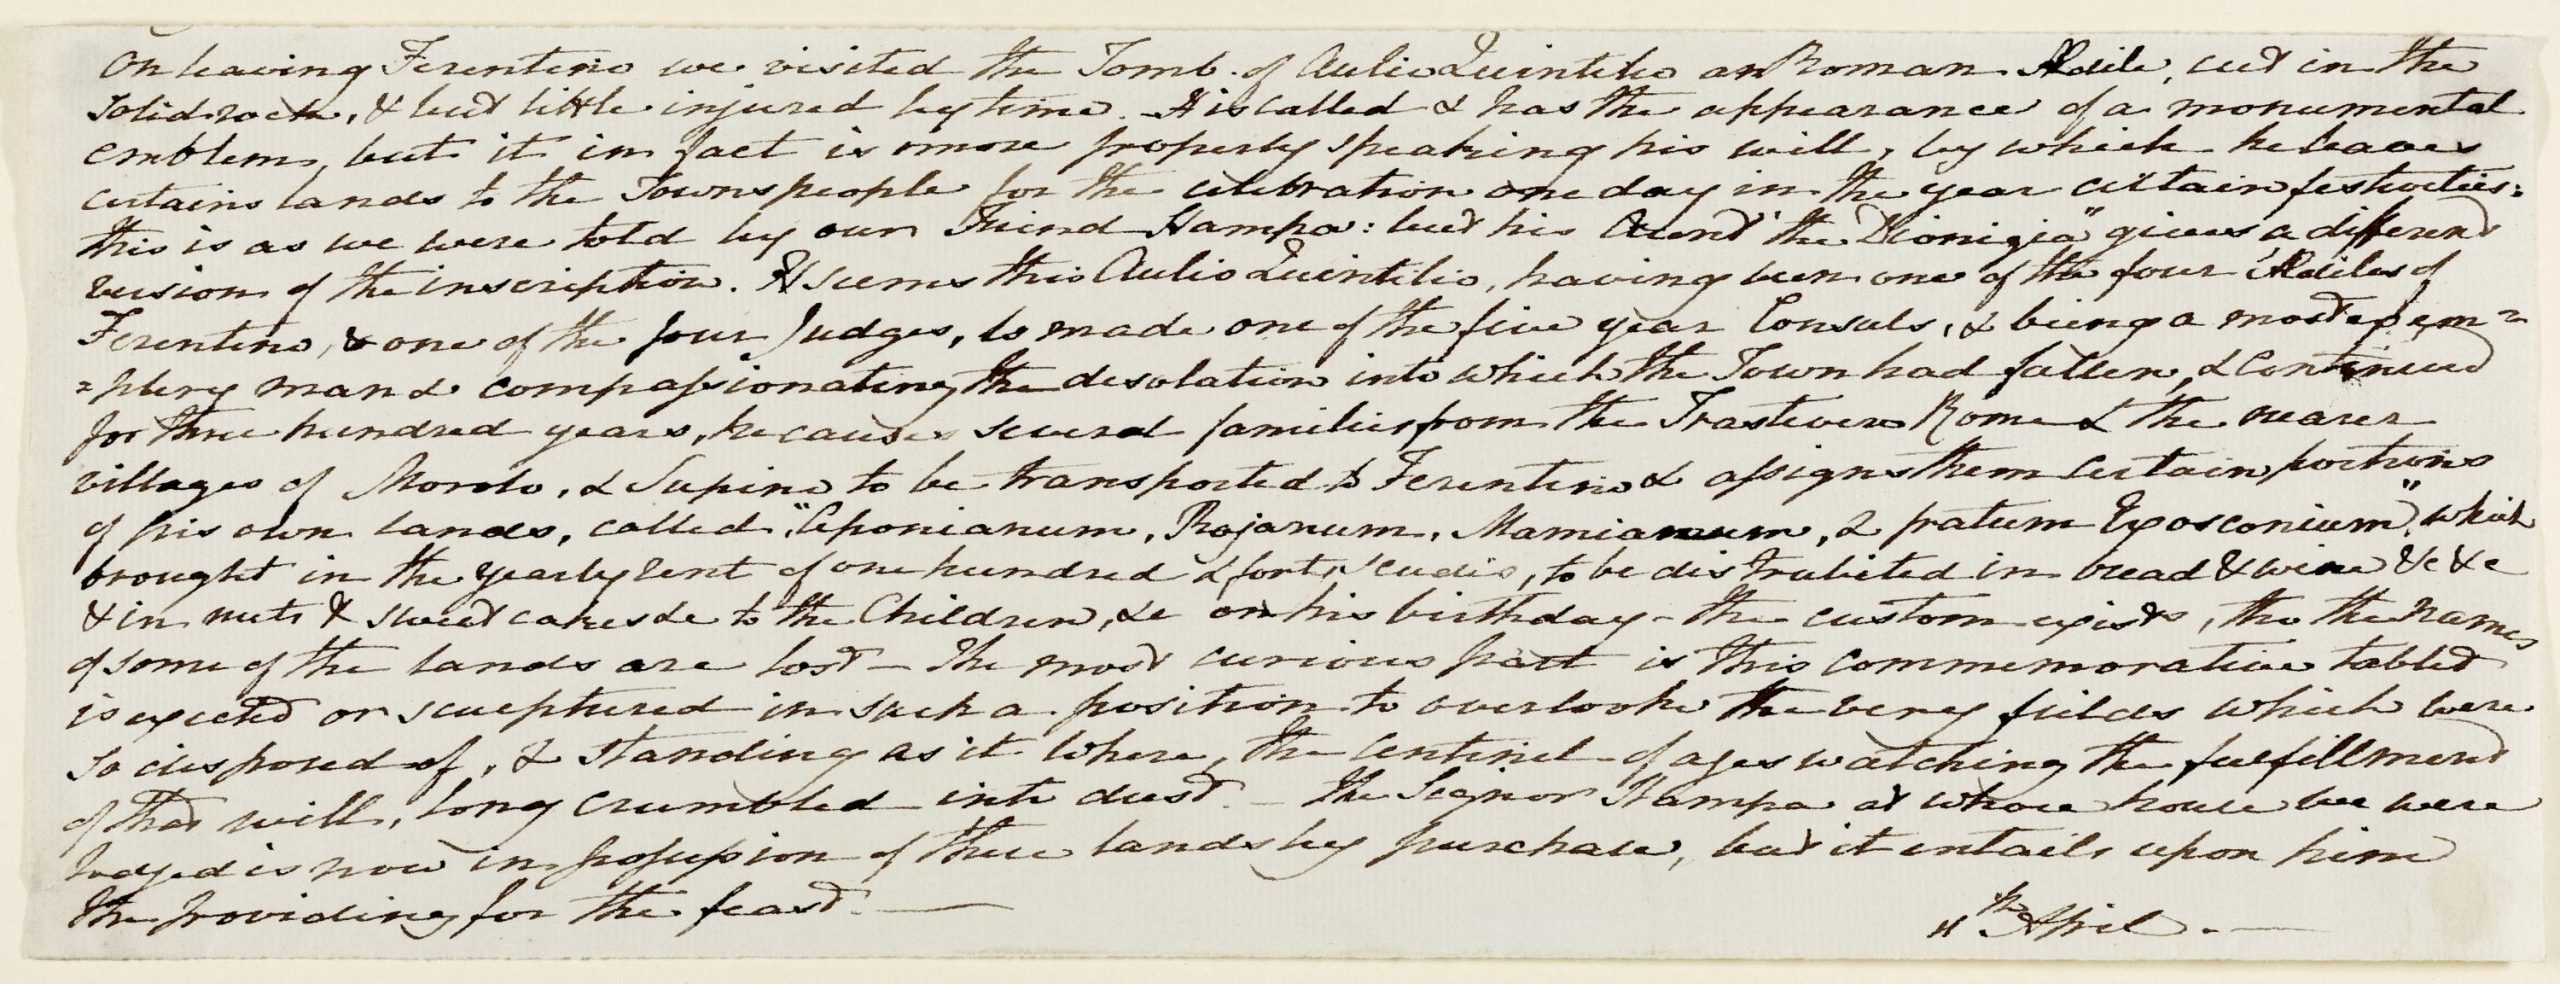 On leaving Ferentino we visited the Tomb of Aulio Quintilio an Roman Ædile, cut in the
solid rock, & but little injured by time. – It is called & has the appearance of a monumental
emblem, but it in fact is more properly speaking his will, by which he leaves
certains lands to the Townspeople for the celebration one day in the year certain festivities:
this is as we were told by our Friend Stampa: but his Aunt "the Dionigia" gives a different
version of the inscription. It seems this Aulio Quintilio, having been one of the four Ædiles of
Ferentino, & one of the four Judges, is made one of the five year Consuls, & being a most exem=
=plery man & compassionating the desolation into which the Town had fallen, & continued
for three hundred years, he causes several families from the Trastevere Rome & the nearer
villages of Morolo, & Supino to be transported to Ferentino & assigns them certain portions
of his own lands, called "Ceponianum, Rojanum, Mamianum, & pratum Exosconium", which
brought in the yearly rent of one hundred & forty scudis, to be distributed in bread & wine &c &c
& in nuts & sweet cakes &c to the Children, &c on his birthday – the custom exists, tho the names
of some of the lands are lost – The most curious part is this commemorative tablet
is erected or sculptured in such a position to overlooke the very fields which were
so disposed of, & standing as it where, the sentinel of ages watching the fulfillment
of that will, long crumbled into dust. – The Signor Stampa at whose house we were
lodged is now in possession of these lands by purchase, but it entails upon him
the providing for the feast. —
11th April. —